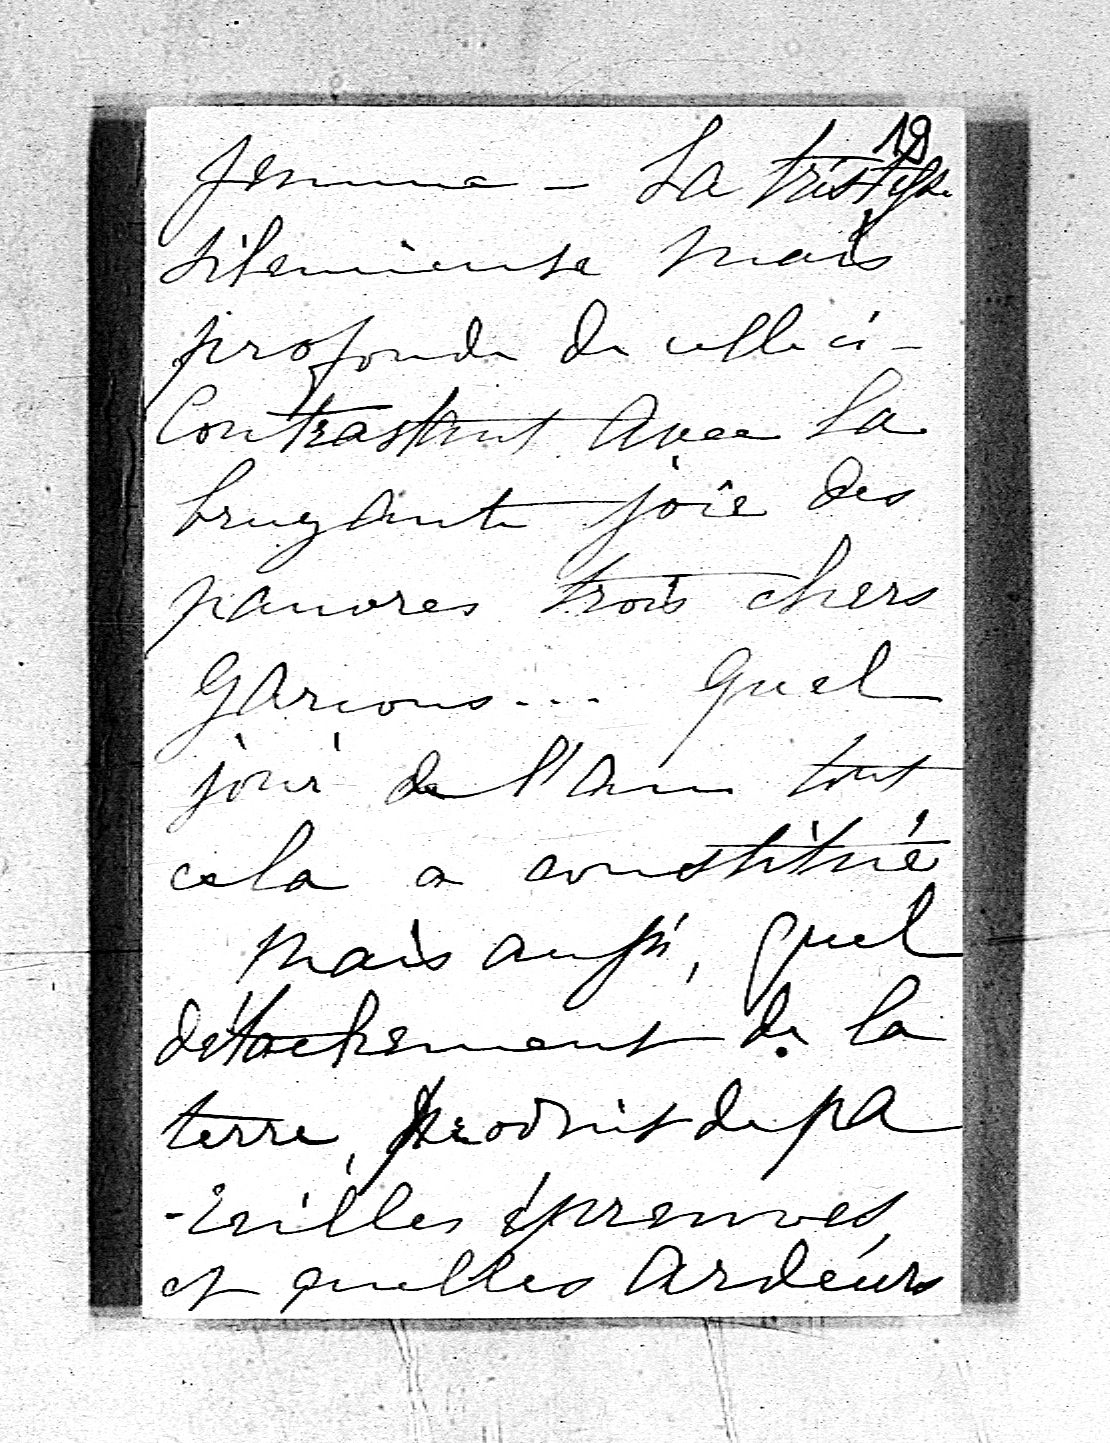 19
femme – La tristesse
silencieuse mais
profonde de celle ci –
Contrastant avec la
bruyante joie des
pauvres trois chers
Garçons... Quel
jour de l'an tout
cela a constitué
Mais aussi, quel
détachement de la
terre, produit de pa
-reilles épreuves,
et quelles ardeurs